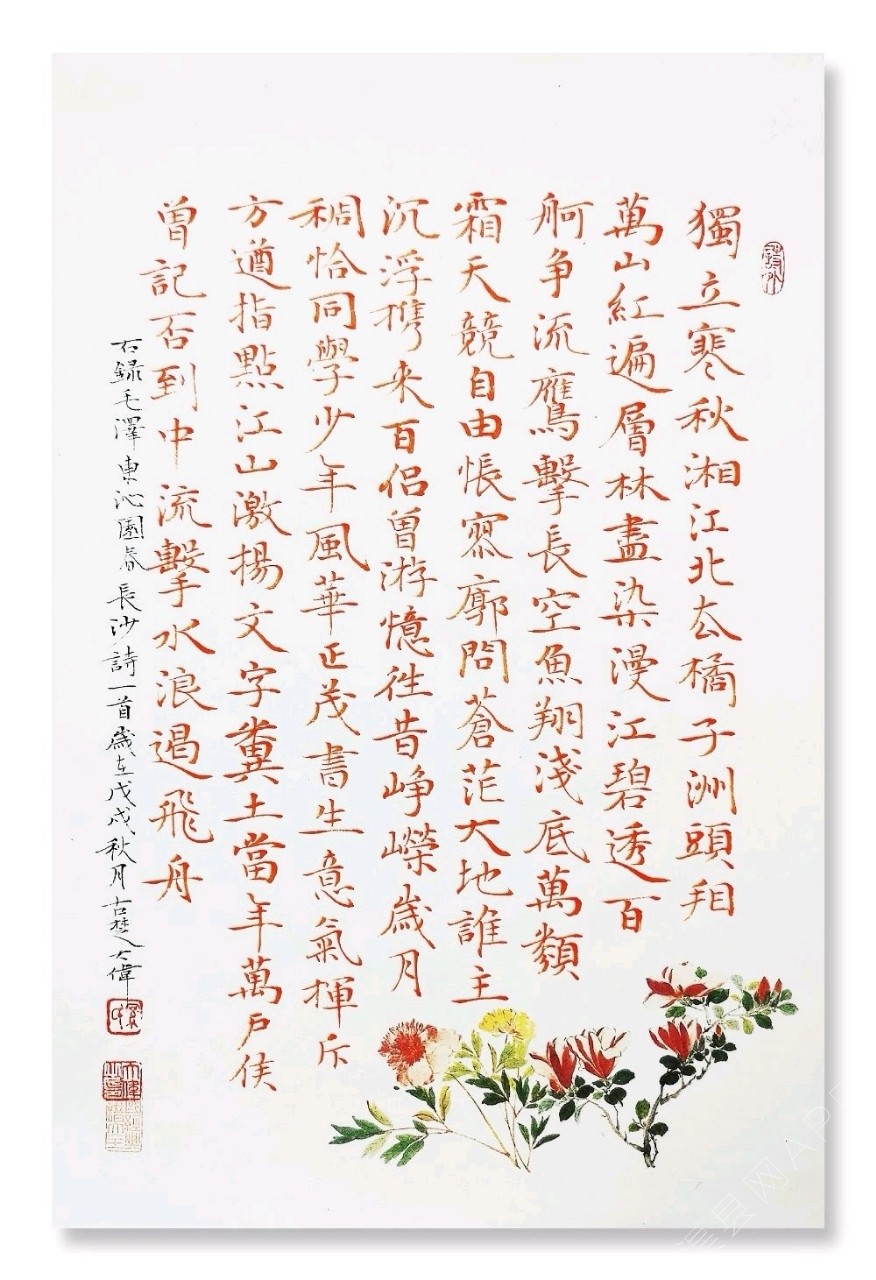 獨立寒秋湘江北去橘子洲頭㸔
萬山紅遍層林盡染漫江碧透百
舸争流鷹擊長空魚翔淺底萬類
霜天競自由悵寥廓問蒼茫大地誰主
沉浮携来百侣曾游憶往昔崢嶸歲月
稠恰同學少年風華正茂書生意氣揮斥
方遒指點江山激揚文字糞土當年萬戶侯
曾記否到中流擊水浪遏飛舟
右録毛澤東沁園春長沙詩一首歲在戊戌秋月古楚大偉